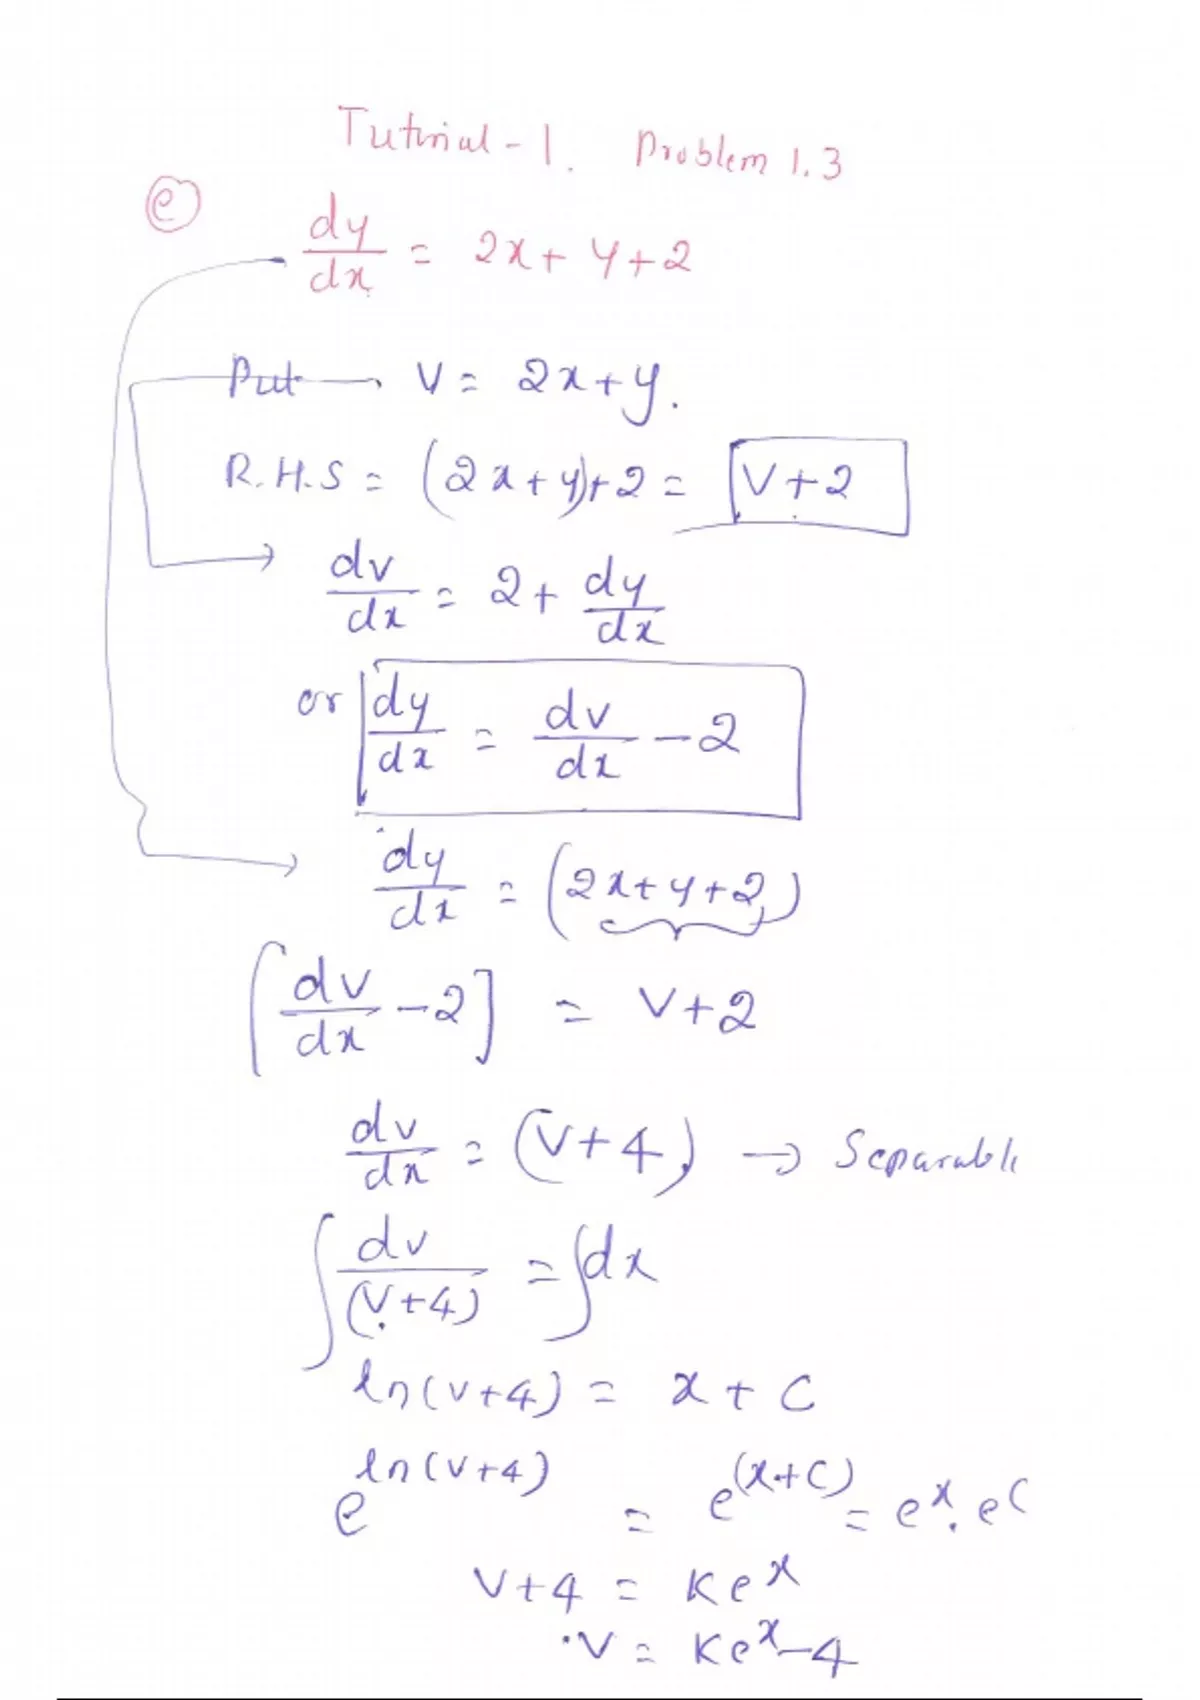 Tutorial - 1. Problem 1.3
(e) dy/dx = 2x + y + 2
Put → V = 2x + y.
R.H.S = (2x + y) + 2 = V + 2
dv/dx = 2 + dy/dx
or dy/dx = dv/dx - 2
dy/dx = (2x + y + 2)
[dv/dx - 2] = V + 2
dv/dx = (V + 4) → Separable
∫ dv/(V + 4) = ∫ dx
ln(v + 4) = x + C
e^ln(v + 4) = e^(x + C) = e^x . e^C
V + 4 = K e^x
. V = K e^x - 4